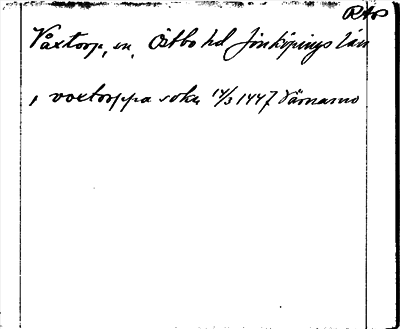 RAP
Våxtorp, sn. Östbo hd Jönköpings län
, voxtorppa sokn 14/3 1447 Värnamo